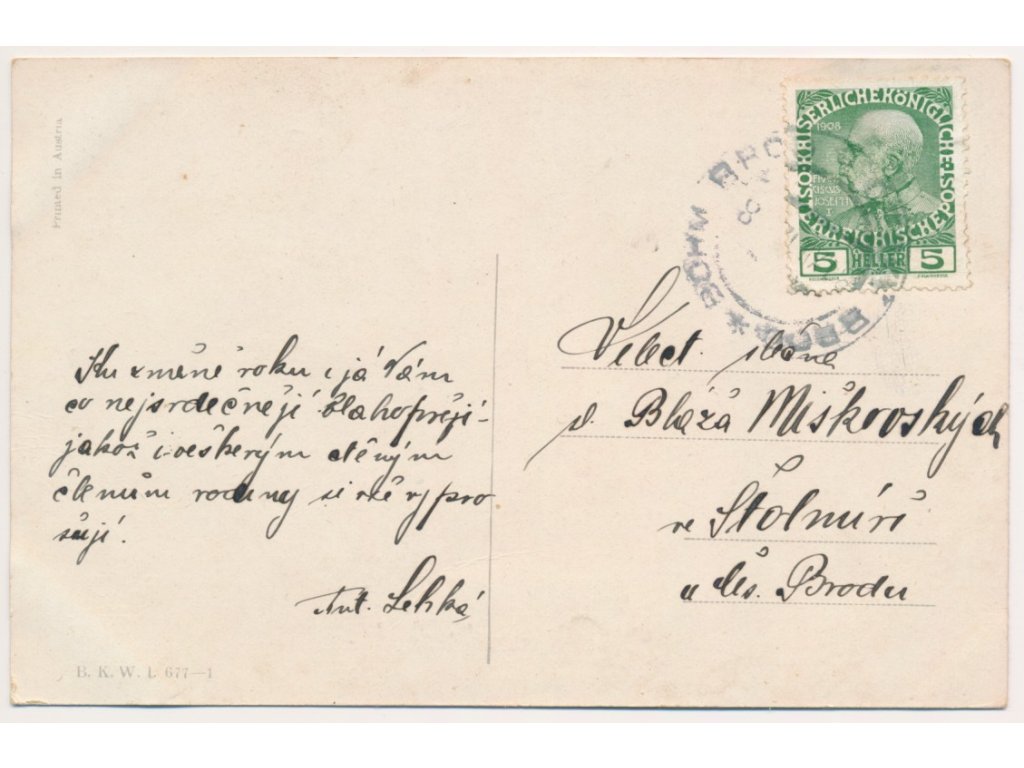 Printed in Austria
ÖSTERREICHISCHE POST KAISERLICHE KÖNIGLICHE
1908
JOSEPH
I
5 HELLER 5
BÖHM BROD
BROD
Ku změně roku i já Vám
co nejsrdečněji blahopřeji
jakož i veškerým ctěným
členům rodiny
Ant. Lehká
B. K. W. I. 677—1
Velect. slečna
Miškovských
ve Štolmíři
u Čes. Brodu